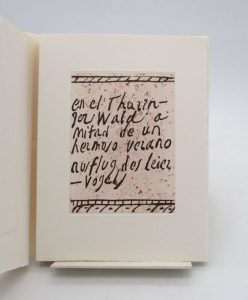 en el Thurin-
ger Wald a
mitad de un
hermoso verano
ausflug des leier
-Vogels